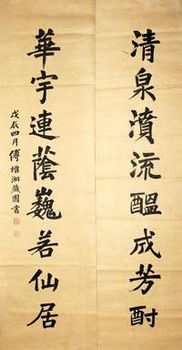 清泉濆流醞成芳酎
華宇連蔭巍若仙居
戊辰四月傅增湘藏園書